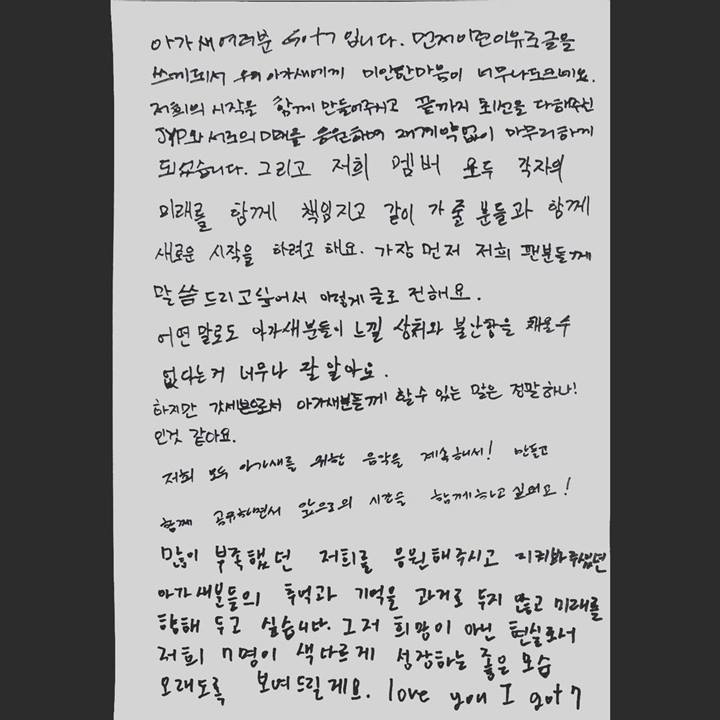 아가새 여러분 Got7 입니다. 먼저 이런 이유로 글을
쓰게되서 우리 아가새에게 미안한마음이 너무나도크네요.
저희의 시작을 함께 만들어주시고 끝까지 최선을 다해주신
JYP와 서로의 미래를 응원하며 재계약없이 마무리하게
되었습니다. 그리고 저희 멤버 모두 각자의
미래를 함께 책임지고 같이 가 줄 분들과 함께
새로운 시작을 하려고 해요. 가장 먼저 저희 팬분들께
말씀 드리고 싶어서 이렇게 글로 전해요.
어떤 말로도 아가새분들이 느낄 상처와 불안함을 채울수
없다는거 너무나 잘 알아요.
하지만 갓세븐으로서 아가새분들께 할수 있는 말은 정말 하나!
인것 같아요.
저희 모두 아가새를 위한 음악을 계속해서! 만들고
함께 공유하면서 앞으로의 시간을 함께하고 싶어요!
많이 부족했던 저희를 응원해주시고 지켜봐주셨던
아가새분들의 추억과 기억을 과거로 두지 않고 미래를
향해 두고 싶습니다. 그저 희망이 아닌 현실로서
저희 7명이 색다르게 성장하는 좋은 모습
오래도록 보여드릴게요. love you I got7